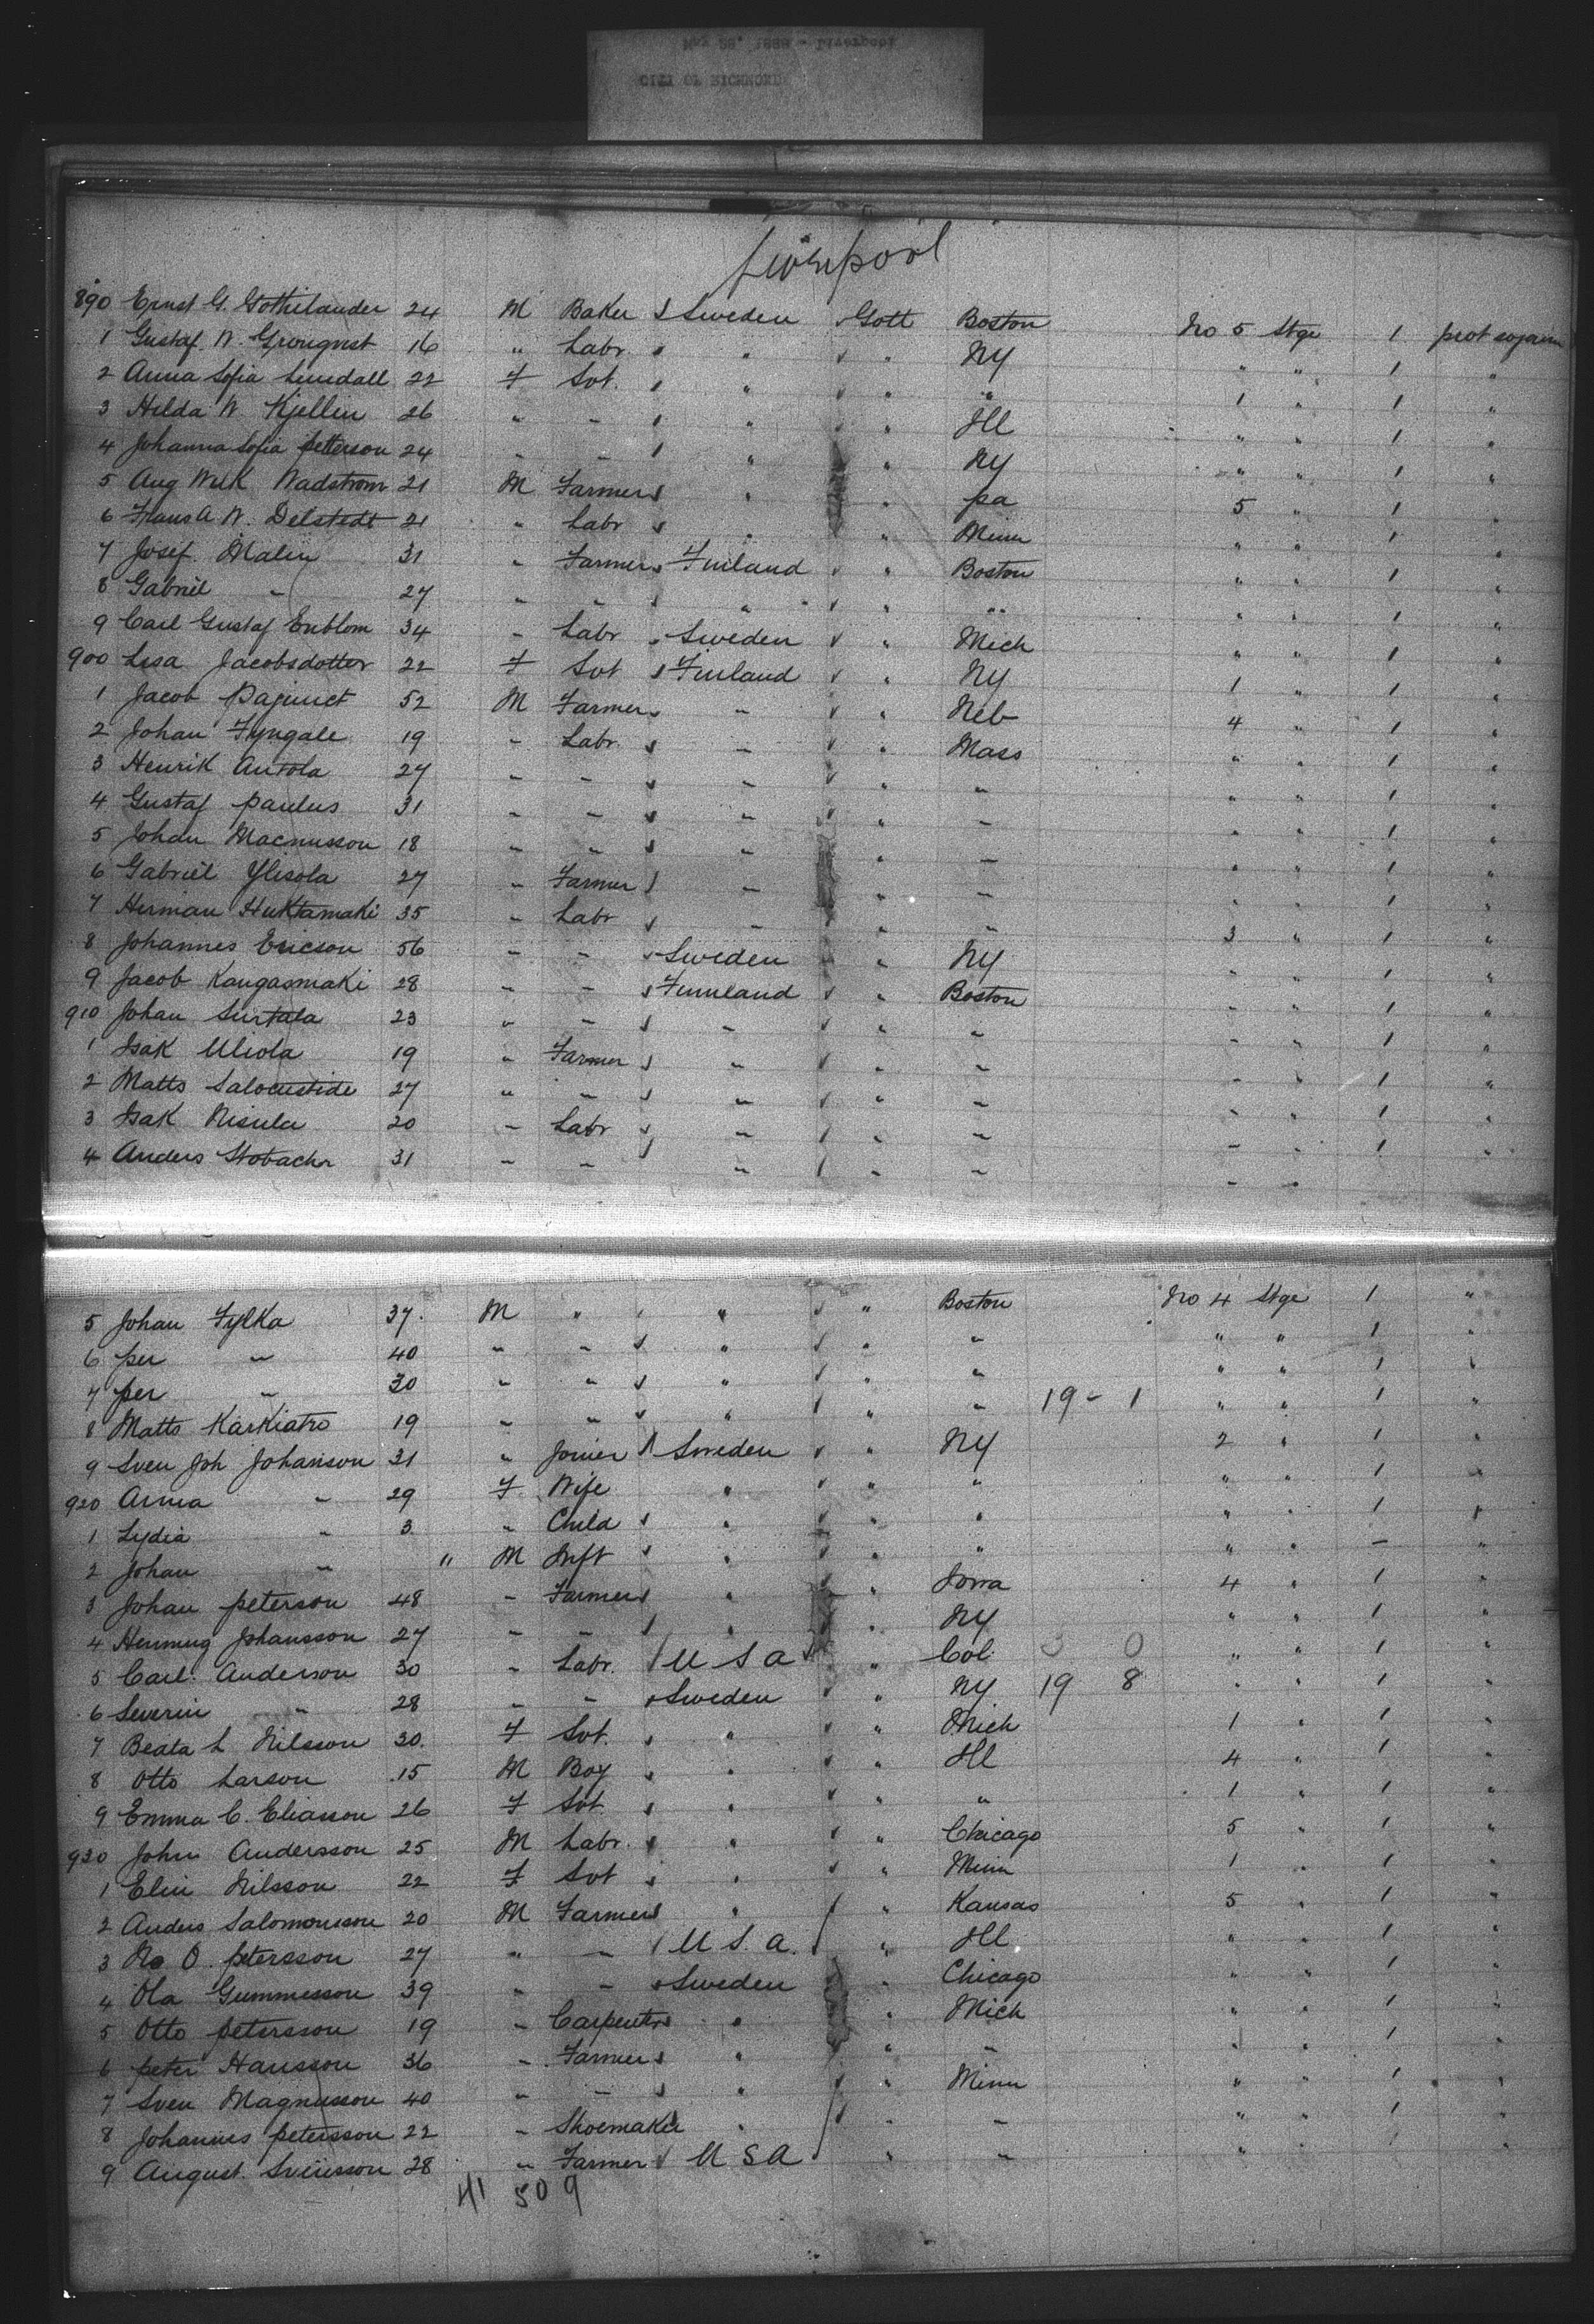 May 28, 1888 - Liverpool
CITY OF RICHMOND
Liverpool
890 Ernst G. Gothilander 24 M Baker Sweden Gott Boston No 5 Stge 1 prot sojourn
1 Gustaf W. Gronqvist 16 " Labr " " NY " " 1 "
2 Anna Sofia Lundall 22 F Svt. " " " 1 " 1 "
3 Hilda W Kjellin 26 " " " " Ill " " 1 "
4 Johanna Sofia petterson 24 " " " " NY " " 1 "
5 Aug Wilk Wadstrom 21 M Farmer " " pa 5 " 1 "
6 Frans A W. Delstedt 21 " Labr " " Minn " " 1 "
7 Josef Malin 31 " Farmer Finland " Boston " " 1 "
8 Gabriel " 27 " " " " " " " 1 "
9 Carl Gustaf Enblom 34 " Labr Sweden " Mich " " 1 "
900 Lisa Jacobsdotter 22 F Svt Finland " NY 1 " 1 "
1 Jacob 52 M Farmer " " Neb 4 " 1 "
2 Johan Fyngale 19 " Labr. " " Mass " " 1 "
3 Henrik Antola 27 " " " " " " " 1 "
4 Gustaf paulus 31 " " " " " " " 1 "
5 Johan Macnusson 18 " " " " " " " 1 "
6 Gabriel Ylisola 27 " Farmer " " " " " 1 "
7 Herman Huktamaki 35 " Labr " " " 3 " 1 "
8 Johannes Ericson 56 " " Sweden " NY " " 1 "
9 Jacob Kangasmaki 28 " " Finnland " Boston " " 1 "
910 Johan Surtala 23 " " " " " " " 1 "
1 Isak Uliola 19 " Farmer " " " " " 1 "
2 Matts 27 " " " " " " " 1 "
3 Isak Nisula 20 " Labr " " " " " 1 "
4 Anders 31 " " " " " " "
5 Johan Fylka 37. M " " " Boston No 4 Stge 1 "
6 per " 40 " " " " " " " 1 "
7 per " 30 " " " " " " " 1 "
8 Matts Karkiatro 19 " " " " " 19 - 1 " " 1 "
9 Sven Joh Johanson 31 " Joiner Sweden " NY 2 " 1 "
920 Anna " 29 F Wife " " " " " 1 "
1 Lydia " 3 " Child " " " " " 1 "
2 Johan " " M Inft " " " " " - "
3 Johan peterson 48 " Farmer " " Iowa 4 " 1 "
4 Henning Johansson 27 " " " " NY " " 1 "
5 Carl. Anderson 30 " Labr. U S A " Col. 3 0 " " 1 "
6 Severin " 28 " " Sweden " NY 19 8 " " 1 "
7 Beata L Nilsson 30. F Svt. " " Mich 1 " 1 "
8 Otto Larson 15 M Boy " " Ill 4 " 1 "
9 Emma C. Eliasson 26 F Svt. " " " 1 " 1 "
930 John Andersson 25 M Labr. " " Chicago 5 " 1 "
1 Elin Nilsson 22 F Svt " " Minn 1 " 1 "
2 Anders Salomonsson 20 M Farmer " " Kansas 5 " 1 "
3 O. petersson 27 " " U S. A. " Ill. " " 1 "
4 Ola Gummesson 39 " " Sweden " Chicago " " 1 "
5 Otto petersson 19 " Carpenter " " Mich " " 1 "
6 peter Hansson 36 " Farmer " " " " " 1 "
7 Sven Magnusson 40 " " " " Minn " " 1 "
8 Johannes petersson 22 " Shoemaker " " " " " 1 "
9 August. Svensson 28 " Farmer U S A " " " "
41 509